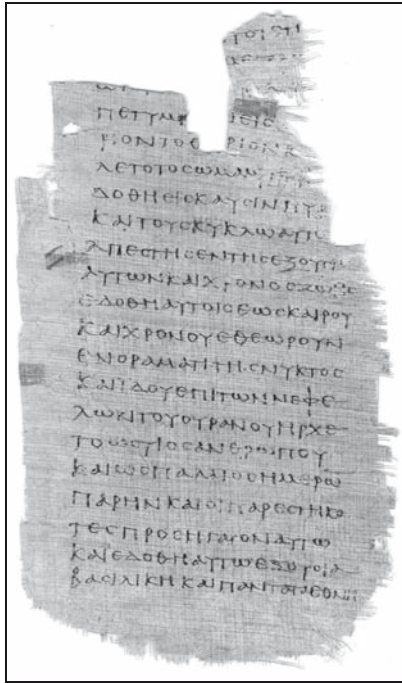 ΠΕΤΥΜ
ΛΕΤΟΤΟСΩΜΑ
ΔΟΘΗΕΙСΚΑΥСΙΝΠΥΡ
ΚΑΙΤΟΥСΚΥΚΛΩΑΥΤ
ΑΠΕСΤΗСΕΝΤΗСΕΞΟΥСΙ
ΑΥΤΩΝΚΑΙΧΡΟΝΟСΖΩΗС
ΕΔΟΘΗΑΥΤΟΙСΕΩСΚΑΙΡΟΥ
ΚΑΙΧΡΟΝΟΥΕΘΕΩΡΟΥΝ
ΕΝΟΡΑΜΑΤΙΤΗСΝΥΚΤΟС
ΚΑΙΙΔΟΥΕΠΙΤΩΝΝΕΦΕ
ΛΩΝΤΟΥΟΥΡΑΝΟΥΗΡΧΕ
ΤΟΩСΥΙΟСΑΝΘΡΩΠΟΥ
ΚΑΙΩСΠΑΛΑΙΟСΗΜΕΡΩ
ΠΑΡΗΝΚΑΙΟΙΠΑΡΕСΤΗΚΟ
ΤΕСΠΡΟСΗΓΑΓΟΝΑΥΤΩ
ΚΑΙΕΔΟΘΗΑΥΤΩΕΞΟΥСΙΑ
ΒΑСΙΛΙΚΗΚΑΙΠΑΝΤΑΤΑΕΘΝΗ